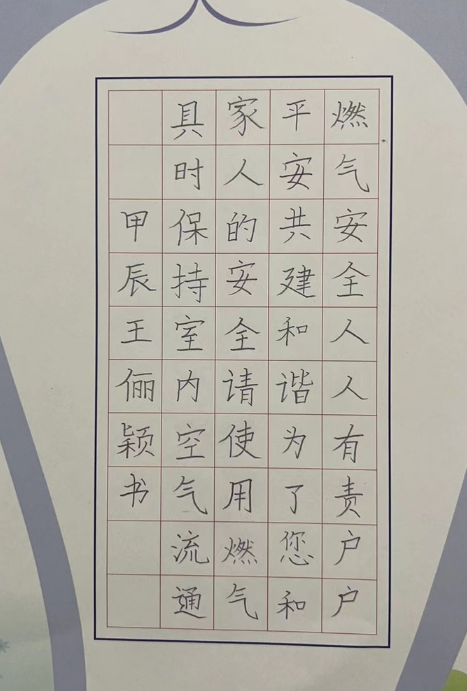 燃气安全人人有责户户
平安共建和谐为了您和
家人的安全请使用燃气
具时保持室内空气流通
甲辰王俪颖书